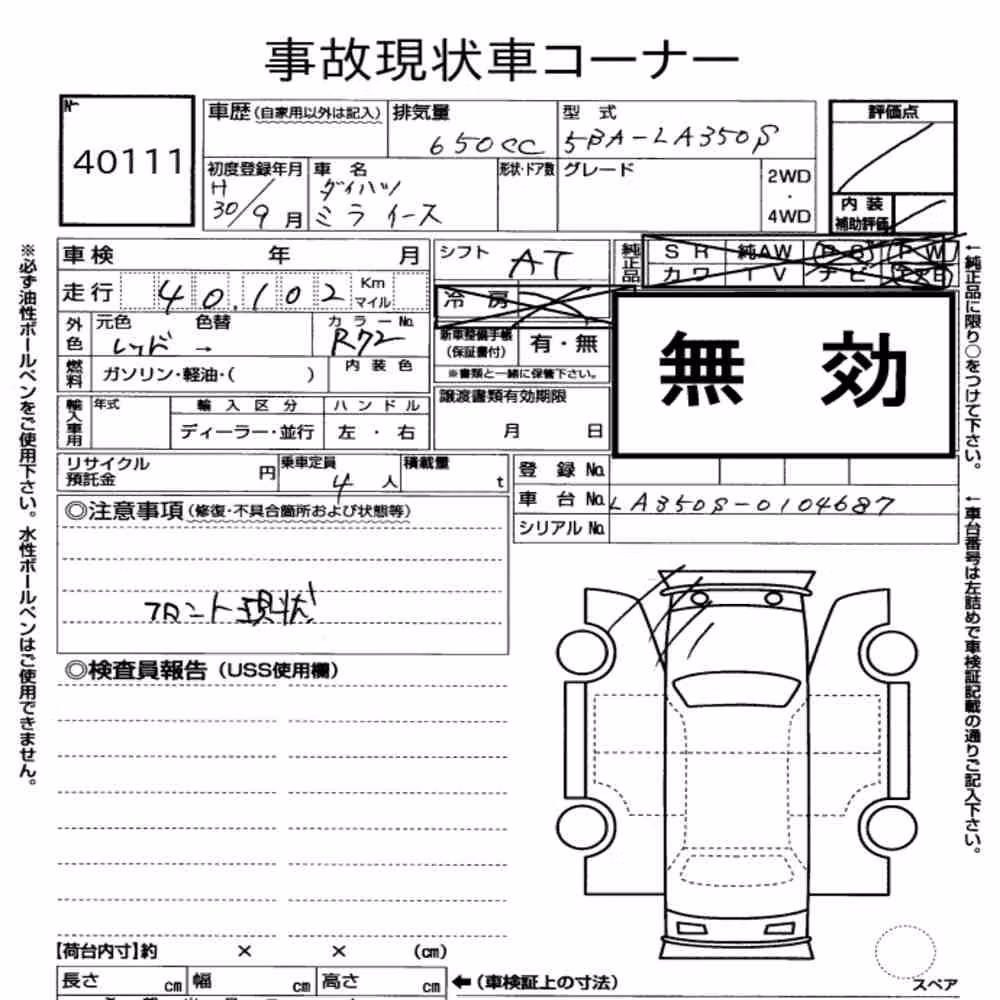 事故現状車コーナー
No. 40111
車歴(自家用以外は記入) 排気量 型式
650cc 5BA-LA350S
評価点
初度登録年月 車名 形状・ドア数 グレード 2WD・4WD
H30/9月 ダイハツ
ミライース
内装
補助評価
車検 年 月
シフト AT
純正品 SR 純AW PS PW
カワ TV ナビ エアB
走行 40,102 Km マイル
冷房
無効
外色 元色 色替 カラーNo.
レッド → R72
新車整備手帳
(保証書付) 有・無
※書類と一緒に保管下さい。
燃料 ガソリン・軽油・( ) 内装色
譲渡書類有効期限
月 日
輸入車用 年式 輸入区分 ハンドル
ディーラー・並行 左・右
リサイクル
預託金 円 乗車定員 4人 積載量 t
登録No.
車台No. LA350S-0104687
シリアルNo.
◎注意事項(修復・不具合箇所および状態等)
フロント現状
◎検査員報告(USS使用欄)
【荷台内寸】約 × × (cm)
長さ cm 幅 cm 高さ cm ←(車検証上の寸法)
スペア
※必ず油性ボールペンをご使用下さい。水性ボールペンはご使用できません。
←純正品に限り○をつけて下さい。
←車台番号は左詰めで車検証記載の通りご記入下さい。